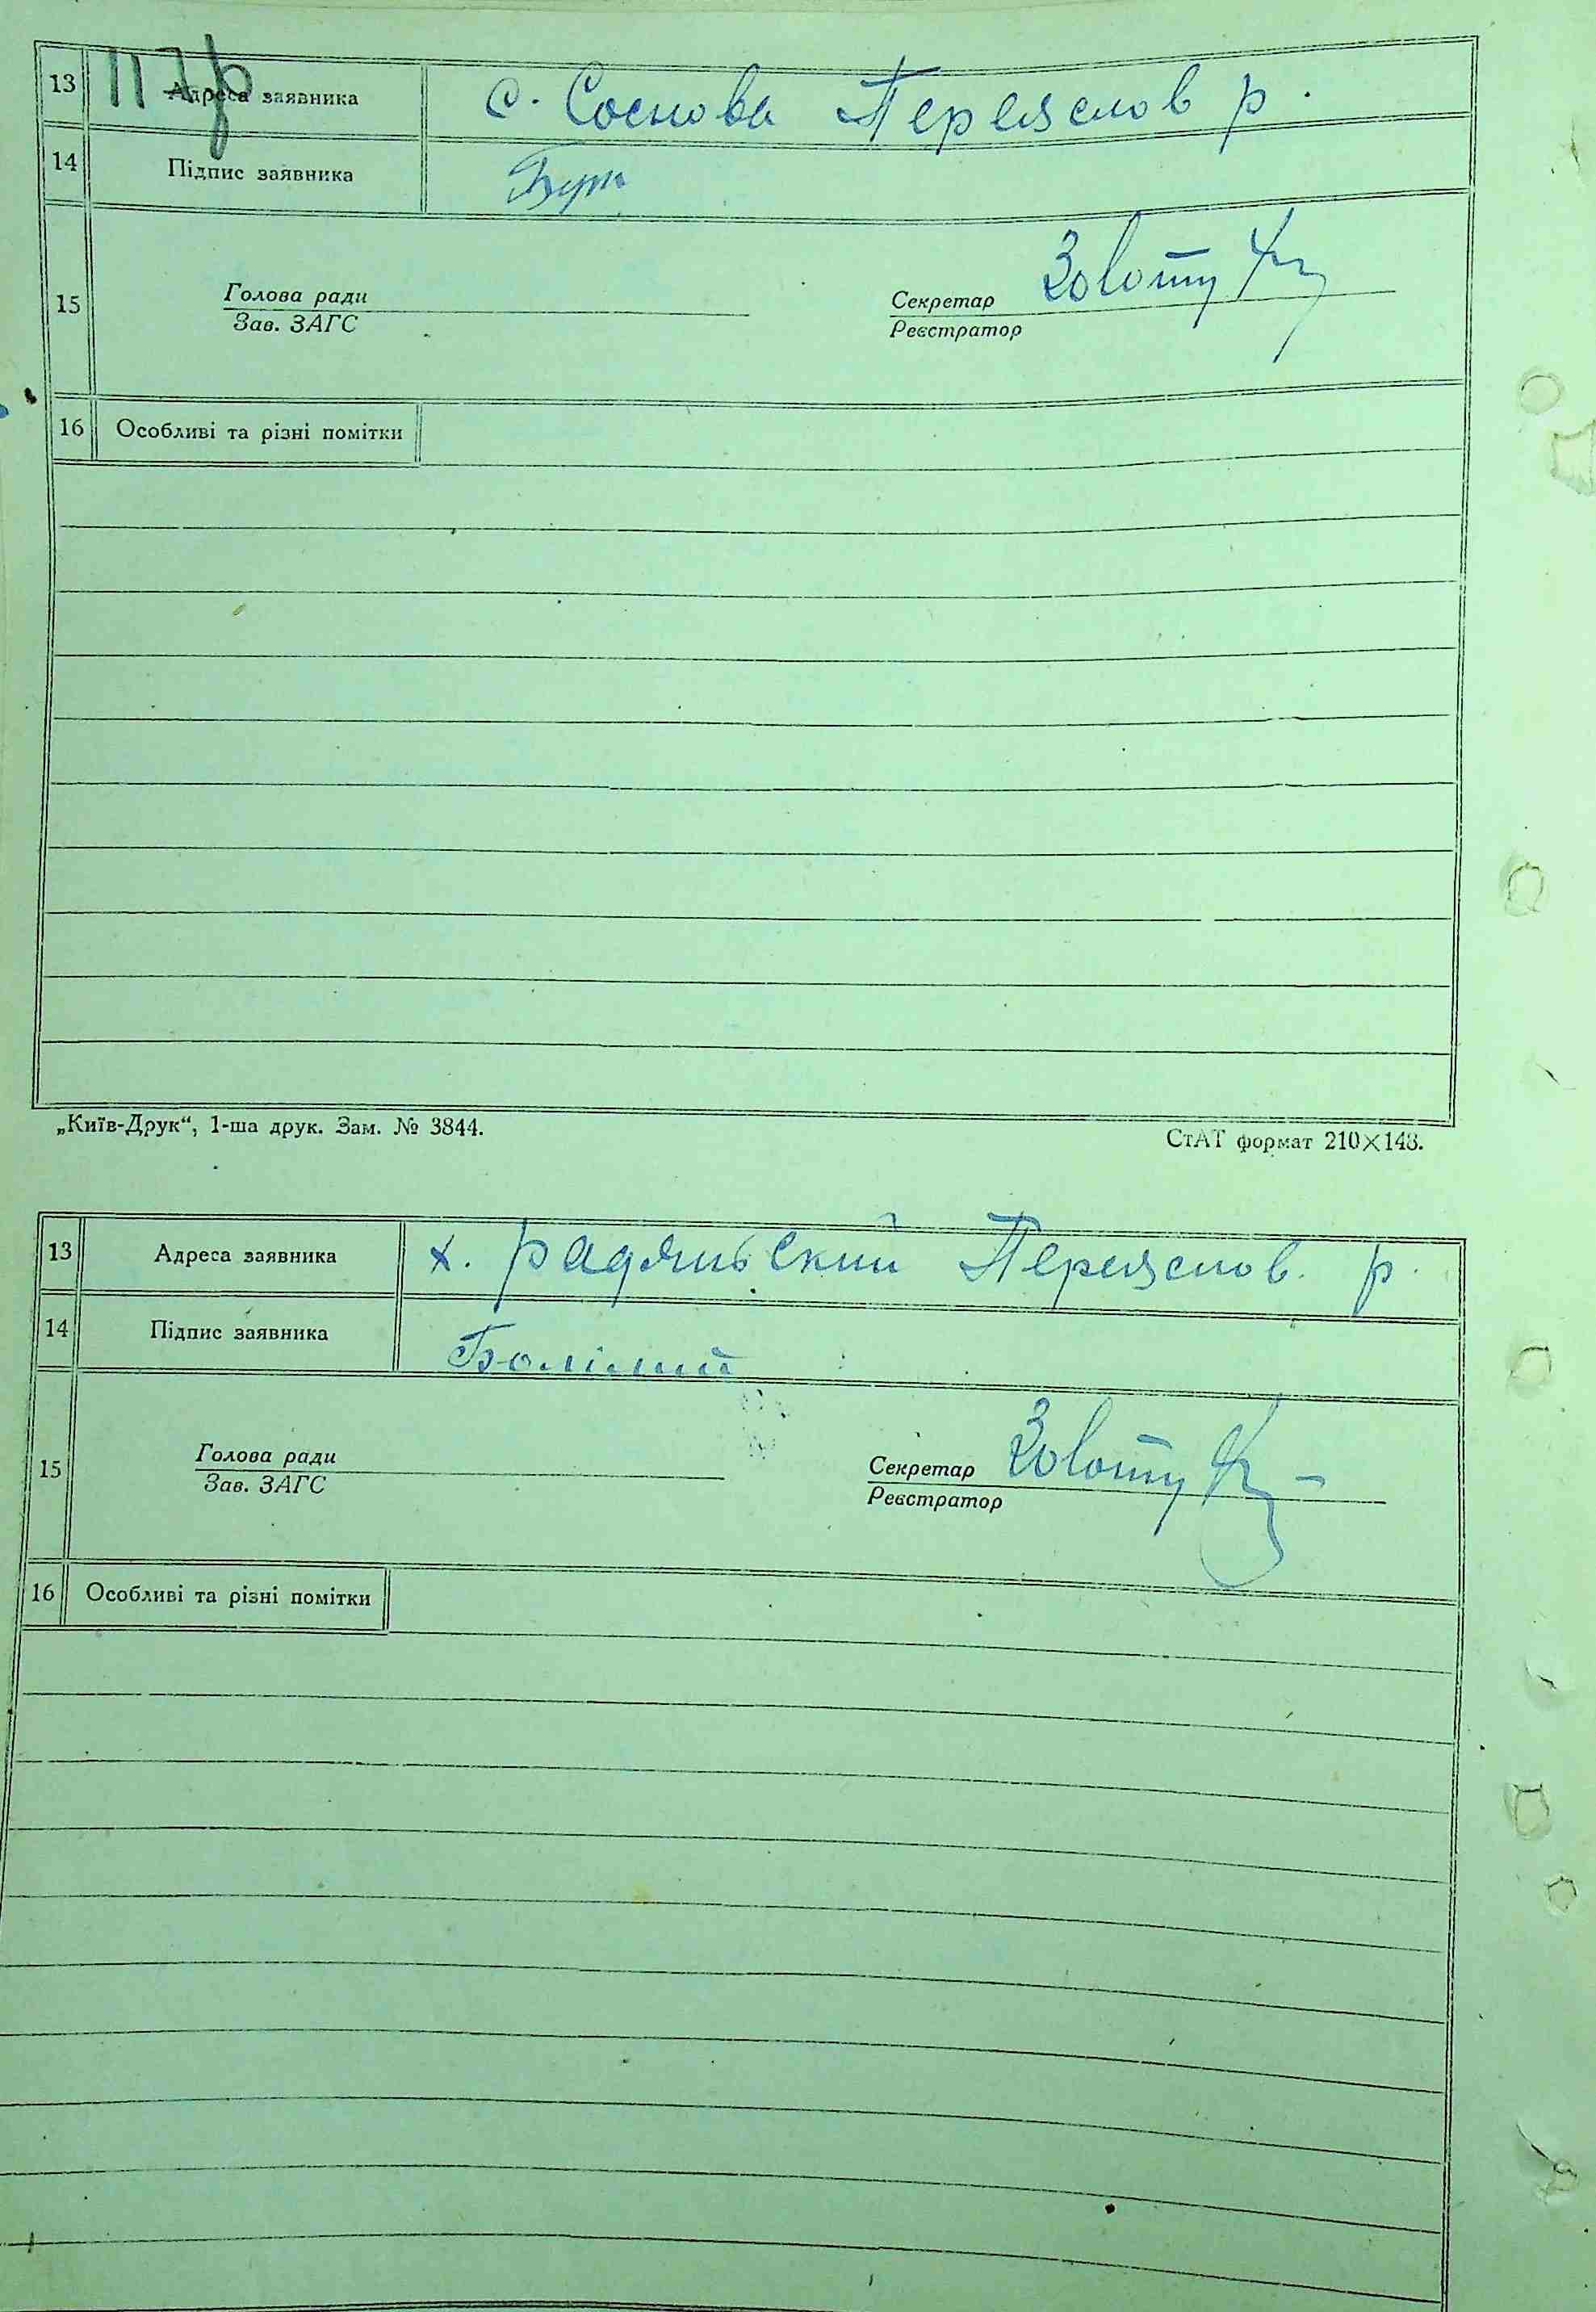 117р
13 Адреса заявника с. Соснова Переяслов р.
14 Підпис заявника Бут
15 Голова ради Секретар Золоту
Зав. ЗАГС Реєстратор
16 Особливі та різні помітки
„Київ-Друк“, 1-ша друк. Зам. № 3844.
СтАТ формат 210×148.
13 Адреса заявника х. Радянський Переяслов. р.
14 Підпис заявника
15 Голова ради Секретар Золоту
Зав. ЗАГС Реєстратор
16 Особливі та різні помітки